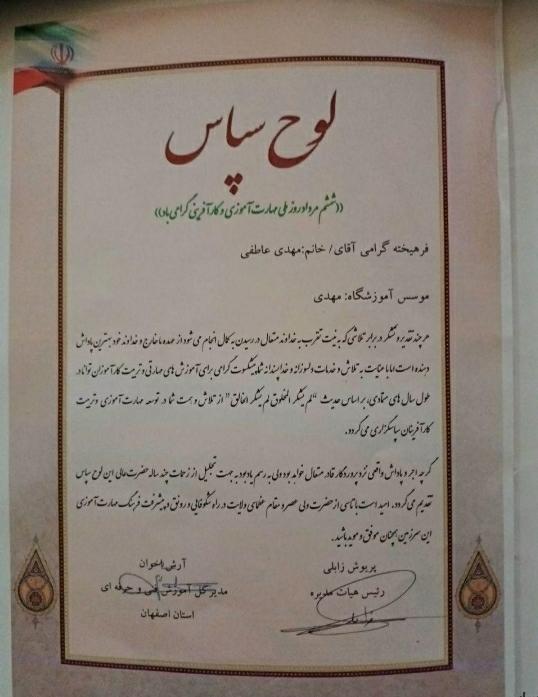 لوح سپاس
((ششم مرداد روز ملی مهارت آموزی و کارآفرینی گرامی باد))
فرهیخته گرامی آقای/ خانم:مهدی عاطفی
موسس آموزشگاه: مهدی
هر چند تقدیر و تشکر در برابر تلاشی که به نیت تقرب به خداوند متعال در رسیدن به کمال انجام می شود از عهده ما خارج و خداوند خود بهترین پاداش
دهنده است اما با عنایت به تلاش و خدمات دلسوزانه و خداپسندانه شما پیشکسوت گرامی برای آموزش های مهارتی و تربیت کارآموزان توانا در
طول سال های متمادی، بر اساس حدیث "لم یشکر المخلوق لم یشکر الخالق" از تلاش و همت شما در توسعه مهارت آموزی و تربیت
کارآفرینان سپاسگزاری می گردد.
گر چه اجر و پاداش واقعی نزد پروردگار قادر متعال خواهد بود ولی به رسم یادبود به جهت تجلیل از زحمات چند ساله حضرت عالی این لوح سپاس
تقدیم می گردد. امید است با تاسی از حضرت ولی عصر و مقام عظمای ولایت در راه شکوفائی و رونق و پیشرفت فرهنگ مهارت آموزی
این سرزمین همچنان موفق و موید باشید.
پریوش زابلی
رئیس هیات مدیره
آرش اخوان
مدیر کل آموزش فنی و حرفه ای
استان اصفهان